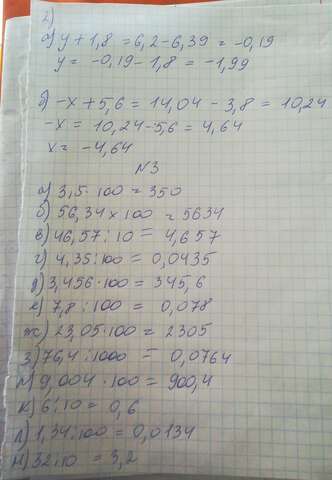 2)
а) y + 1,8 = 6,2 - 6,39 = -0,19
y = -0,19 - 1,8 = -1,99
б) -x + 5,6 = 14,04 - 3,8 = 10,24
-x = 10,24 - 5,6 = 4,64
x = -4,64
№3
а) 3,5 · 100 = 350
б) 56,34 x 100 = 5634
в) 46,57 : 10 = 4,657
г) 4,35 : 100 = 0,0435
д) 3,456 · 100 = 345,6
е) 7,8 : 100 = 0,078
ж) 23,05 · 100 = 2305
з) 76,4 : 1000 = 0,0764
и) 9,004 · 100 = 900,4
к) 6 : 10 = 0,6
л) 1,34 : 100 = 0,0134
м) 32 : 10 = 3,2